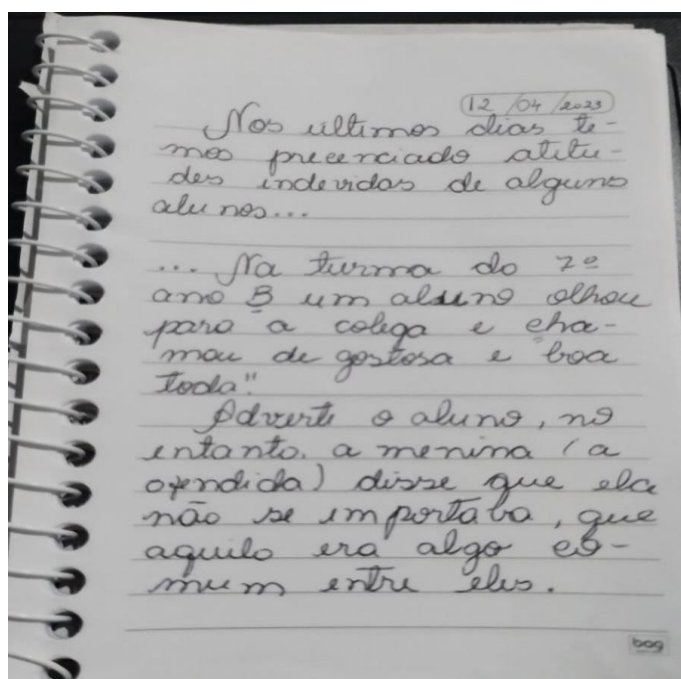 12/04/2023
Nos ultimos dias te-
mos preenciado atitu-
des indevidas de alguns
alunos...
... Na turma do 7º
ano B um aluno olhou
para a colega e cha-
mou de gostosa e boa
toda"
Adverti o aluno, no
entanto, a menina (a
ofendida) disse que ela
não se importaba, que
aquilo era algo co-
mum entre eles.